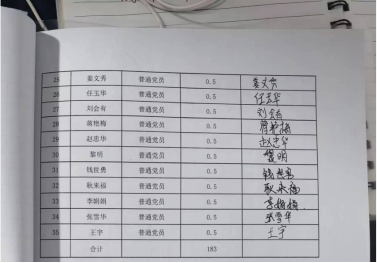 25 姜文秀 普通党员 0.5 姜文秀
26 任玉华 普通党员 0.5 任玉华
27 刘会有 普通党员 0.5 刘会有
28 蒋艳梅 普通党员 0.5 蒋艳梅
29 赵忠华 普通党员 0.5 赵忠华
30 黎明 普通党员 0.5 黎明
31 钱贵勇 普通党员 0.5
32 耿来福 普通党员 0.5 耿来福
33 李娟娟 普通党员 0.5 李娟娟
34 张雪华 普通党员 0.5 张雪华
35 王宇 普通党员 0.5 王宇
合计 183